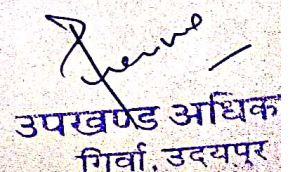 उपखण्ड अधिक
गिर्वा, उदयपुर